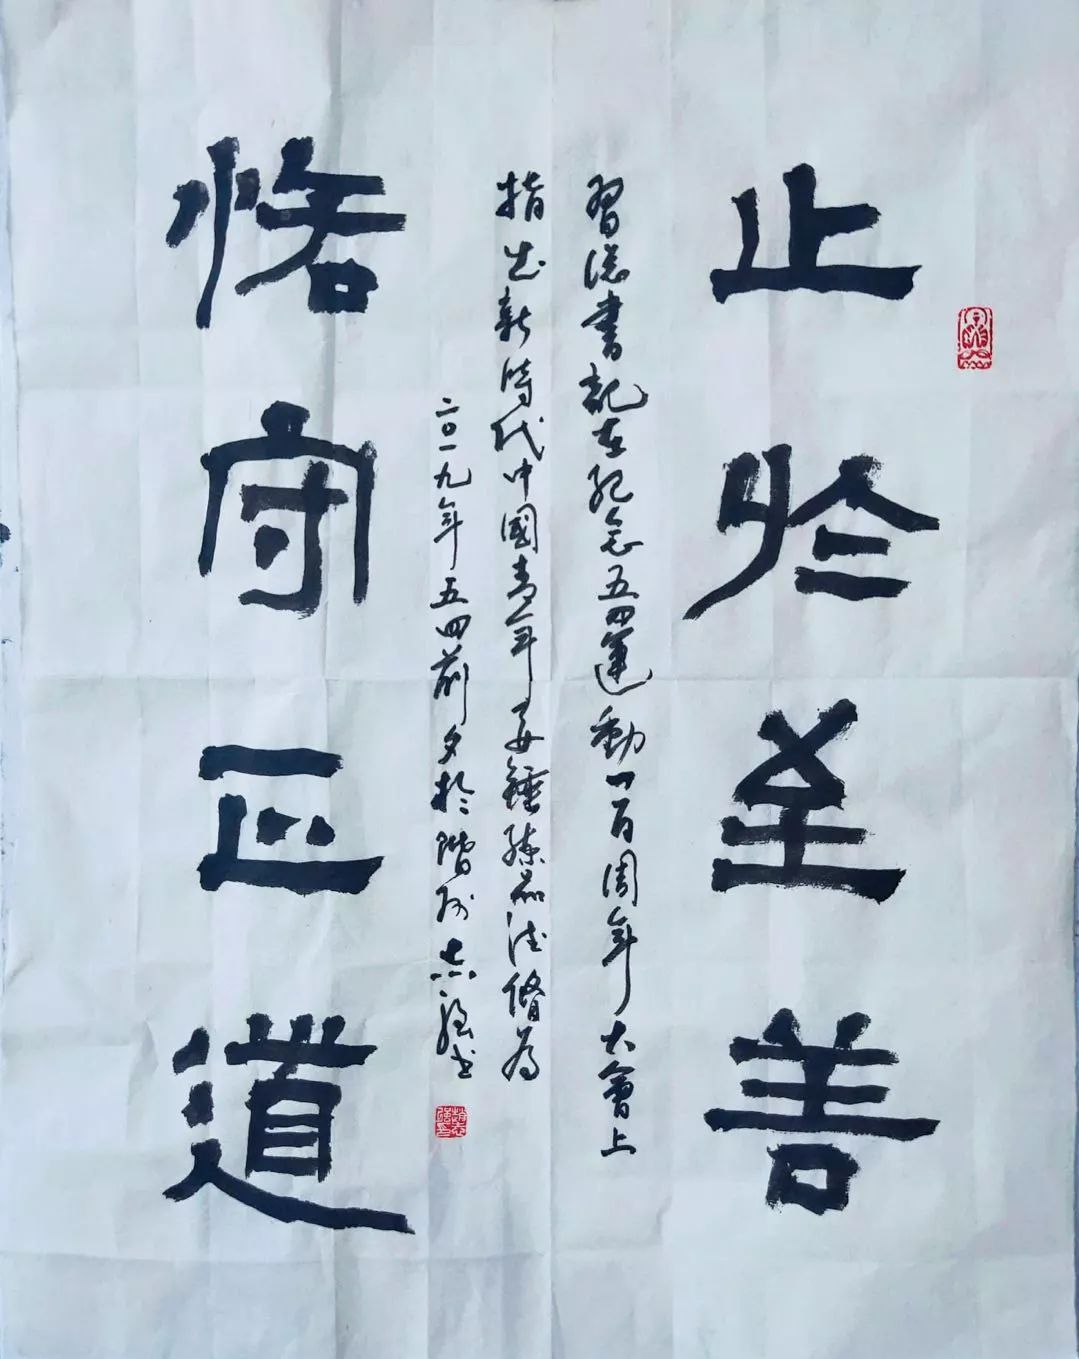 止於至善
習總書記在紀念五四運動一百周年大會上
指出新時代中國青年要錘練品德脩為
二〇一九年五四前夕於階州志強書
恪守正道